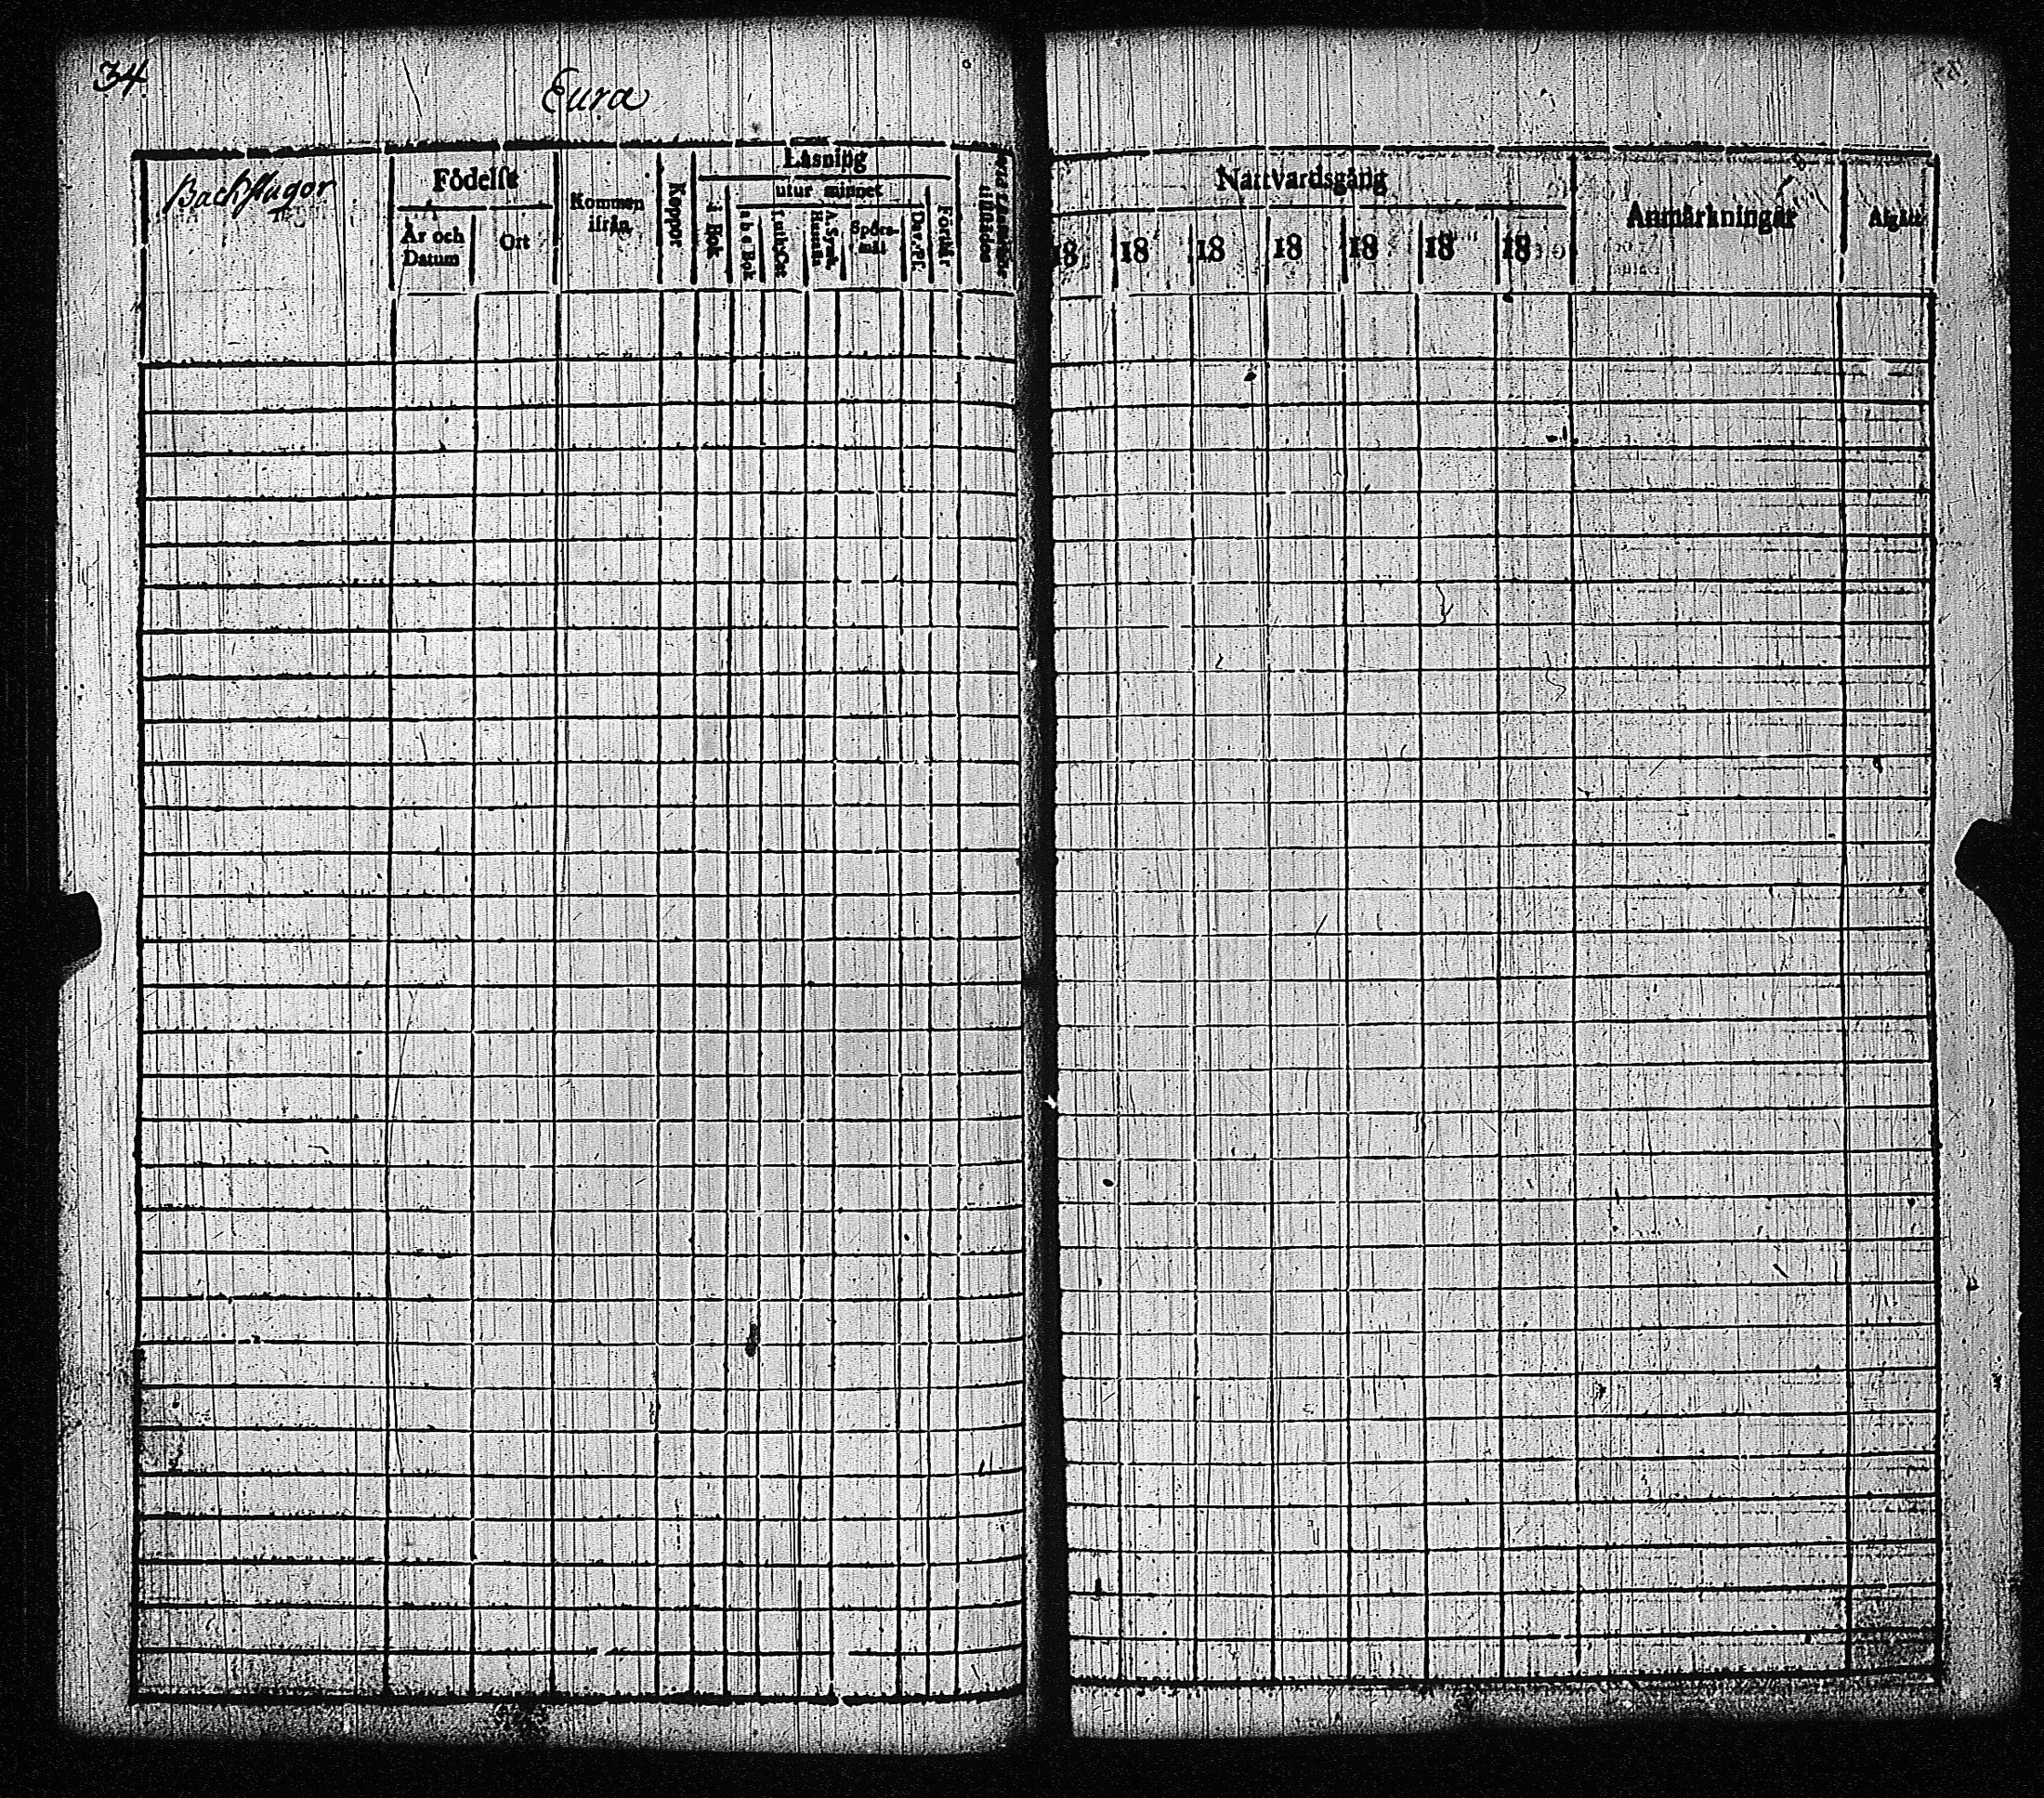 34
Eura
Backstugor
Födelse
År och
Datum
Ort
Kommen
ifrån
Koppor
Läsning
utur minnet
i Bok
a b c Bok
Luth. Cat
A. Symb.
Hustafla
Spörs-
mål
Dav. Ps.
Förstår
Nattvardsgång
18
18
18
18
18
18
18
Anmärkningar
Afgått